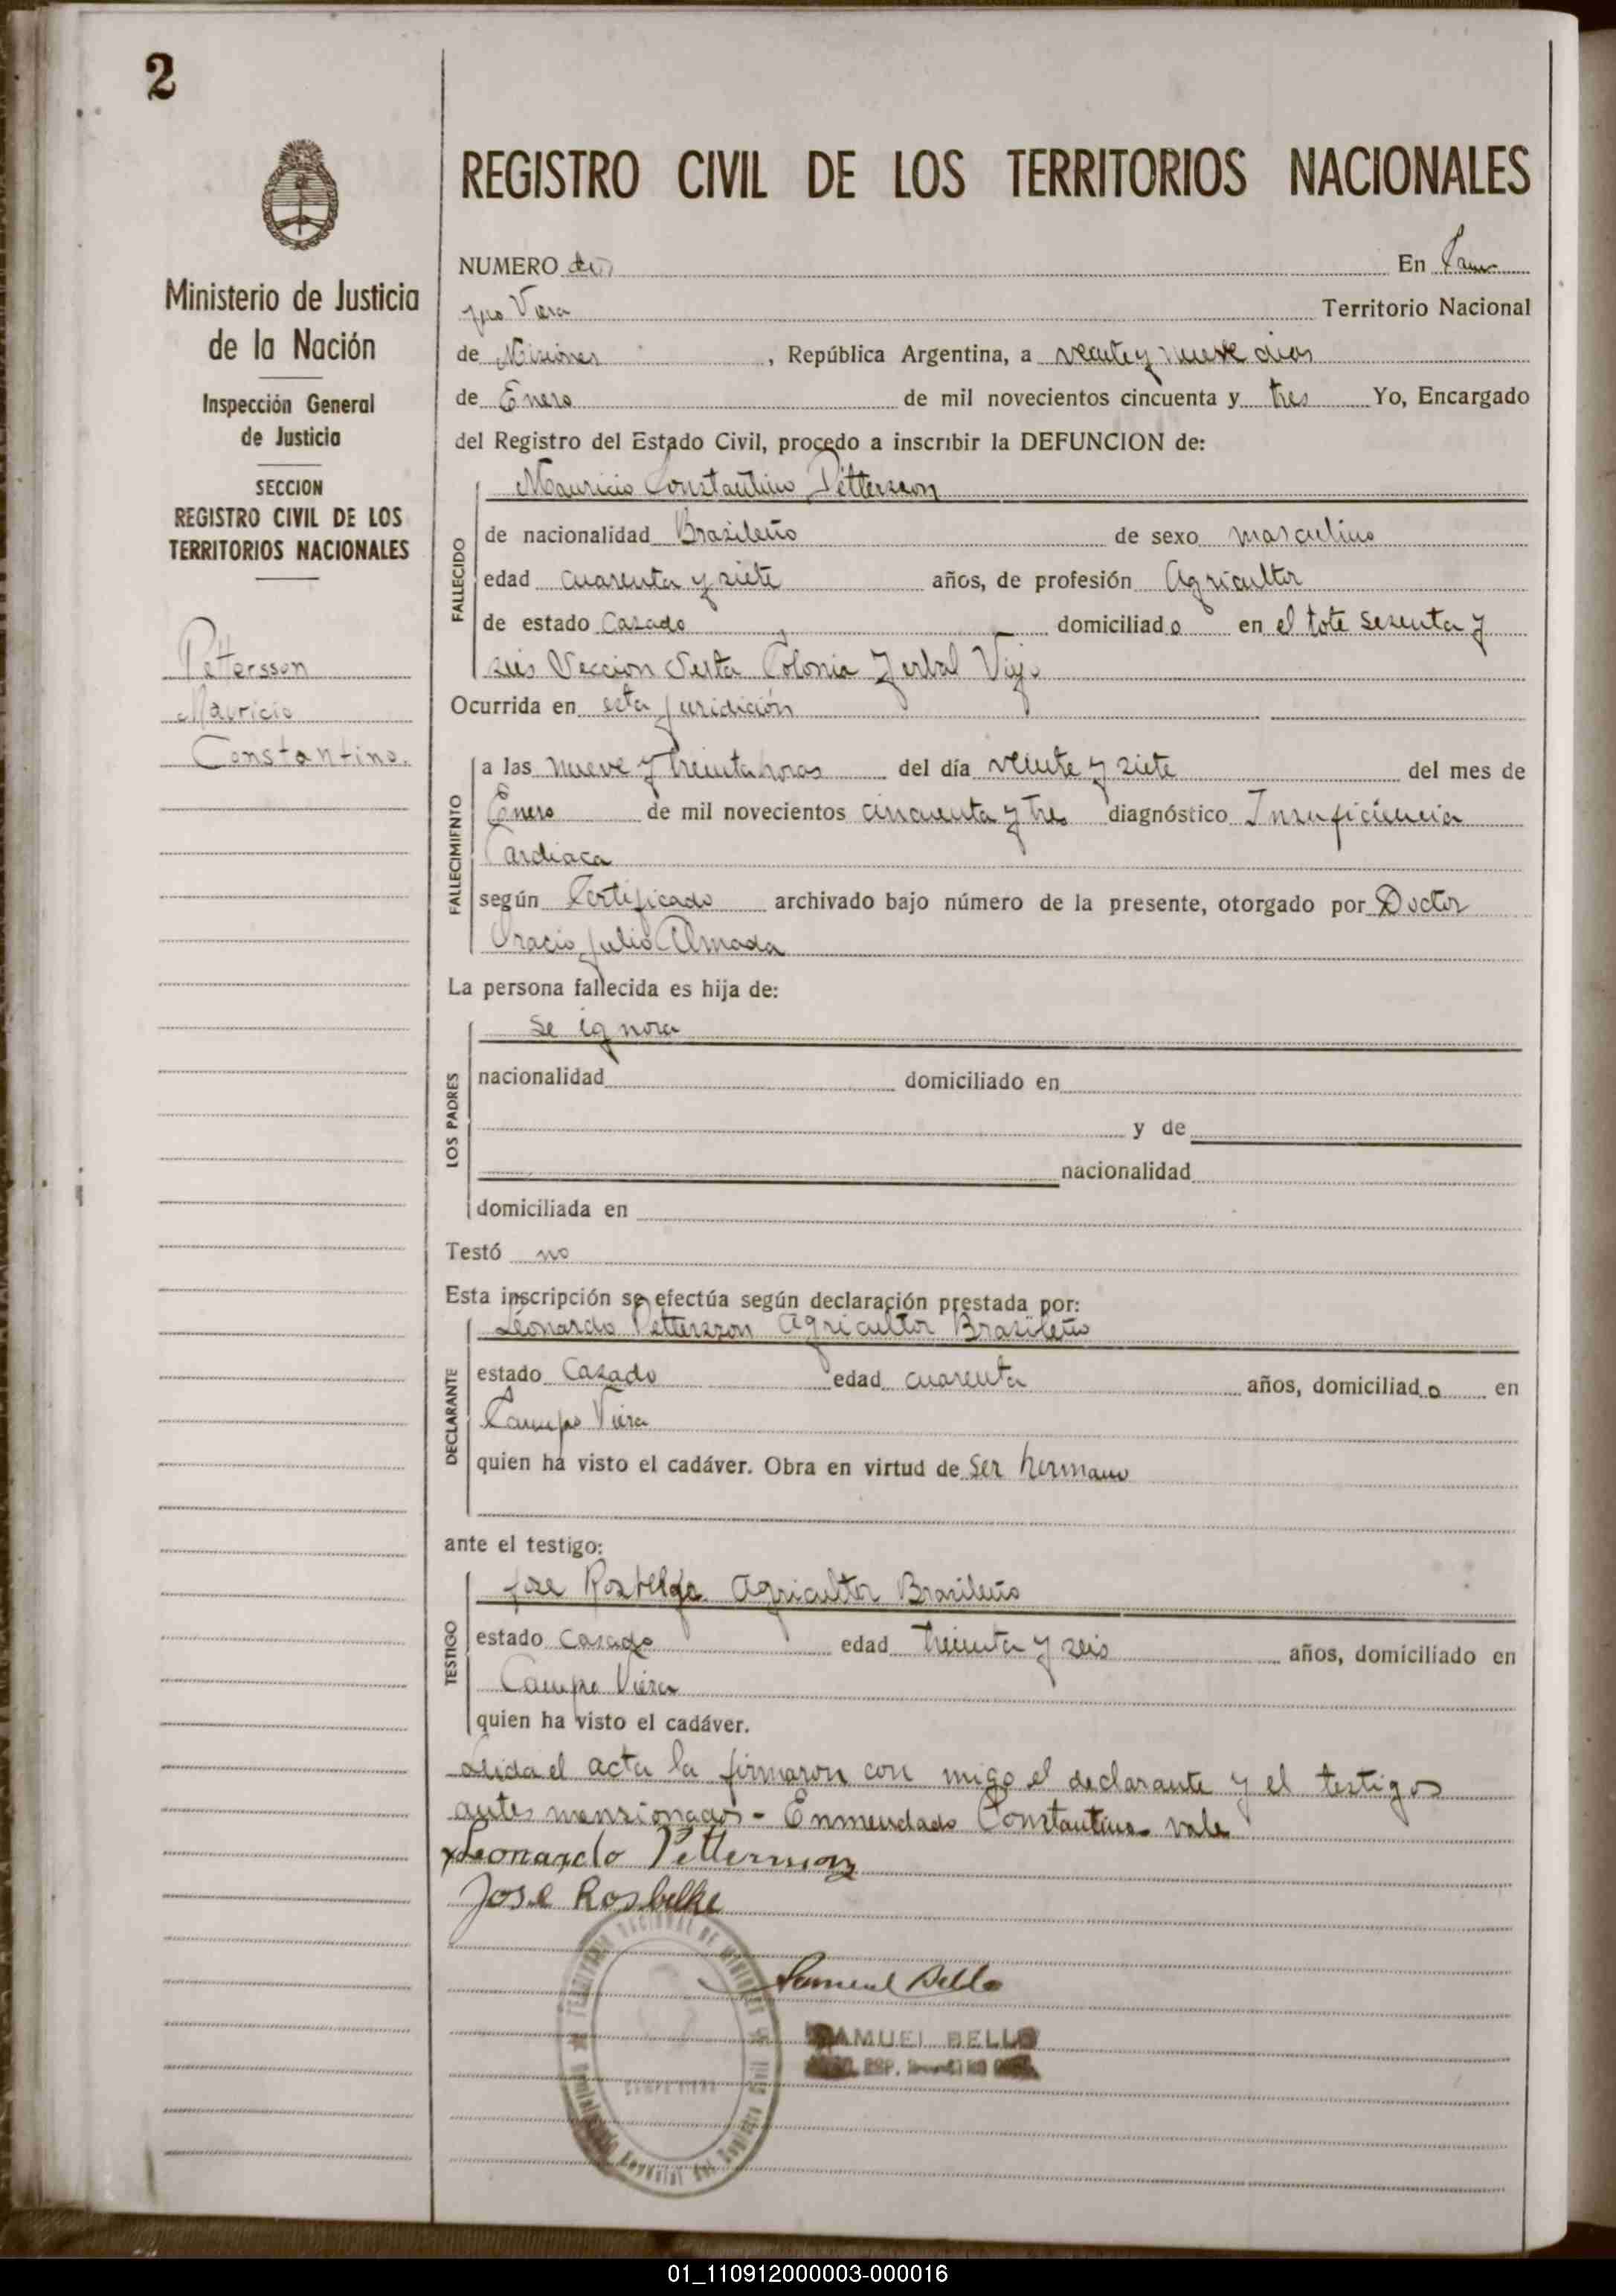 2
Ministerio de Justicia
de la Nación
Inspección General
de Justicia
SECCION
REGISTRO CIVIL DE LOS
TERRITORIOS NACIONALES
Pettersson
Mauricio
Constantino.
REGISTRO CIVIL DE LOS TERRITORIOS NACIONALES
NUMERO dos En Cam-
po Viera Territorio Nacional
de Misiones, República Argentina, a veinte y nueve dias
de Enero de mil novecientos cincuenta y tres Yo, Encargado
del Registro del Estado Civil, procedo a inscribir la DEFUNCION de:
FALLECIDO
Mauricio Constantino Pettersson
de nacionalidad Brasileño de sexo masculino
edad cuarenta y siete años, de profesión Agricultor
de estado Casado domiciliado en el lote sesenta y
seis Seccion Sexta Colonia Yerbal Viejo
Ocurrida en esta juridición
FALLECIMIENTO
a las nueve y treinta horas del día veinte y siete del mes de
Enero de mil novecientos cincuenta y tres diagnóstico Insuficiencia
Cardiaca
según Certificado archivado bajo número de la presente, otorgado por Doctor
Oracio Julio Almada
La persona fallecida es hija de:
LOS PADRES
se ignora
nacionalidad domiciliado en
y de
nacionalidad
domiciliada en
Testó no
Esta inscripción se efectúa según declaración prestada por:
DECLARANTE
Leonardo Pettersson Agricultor Brasileño
estado Casado edad cuarenta años, domiciliado en
Campo Viera
quien ha visto el cadáver. Obra en virtud de ser hermano
ante el testigo:
TESTIGO
Jose Agricultor Brasileño
estado Casado edad treinta y seis años, domiciliado en
Campo Viera
quien ha visto el cadáver.
Leida el acta la firmaron con migo el declarante y el testigos
antes mensionados - Enmendado Constantino vale
Leonardo Pettersson
Jose Rosbelke
Samuel Bello
SAMUEL BELLO
TERRITORIO NACIONAL DE MISIONES
CAMPO VIERA
01_110912000003-000016